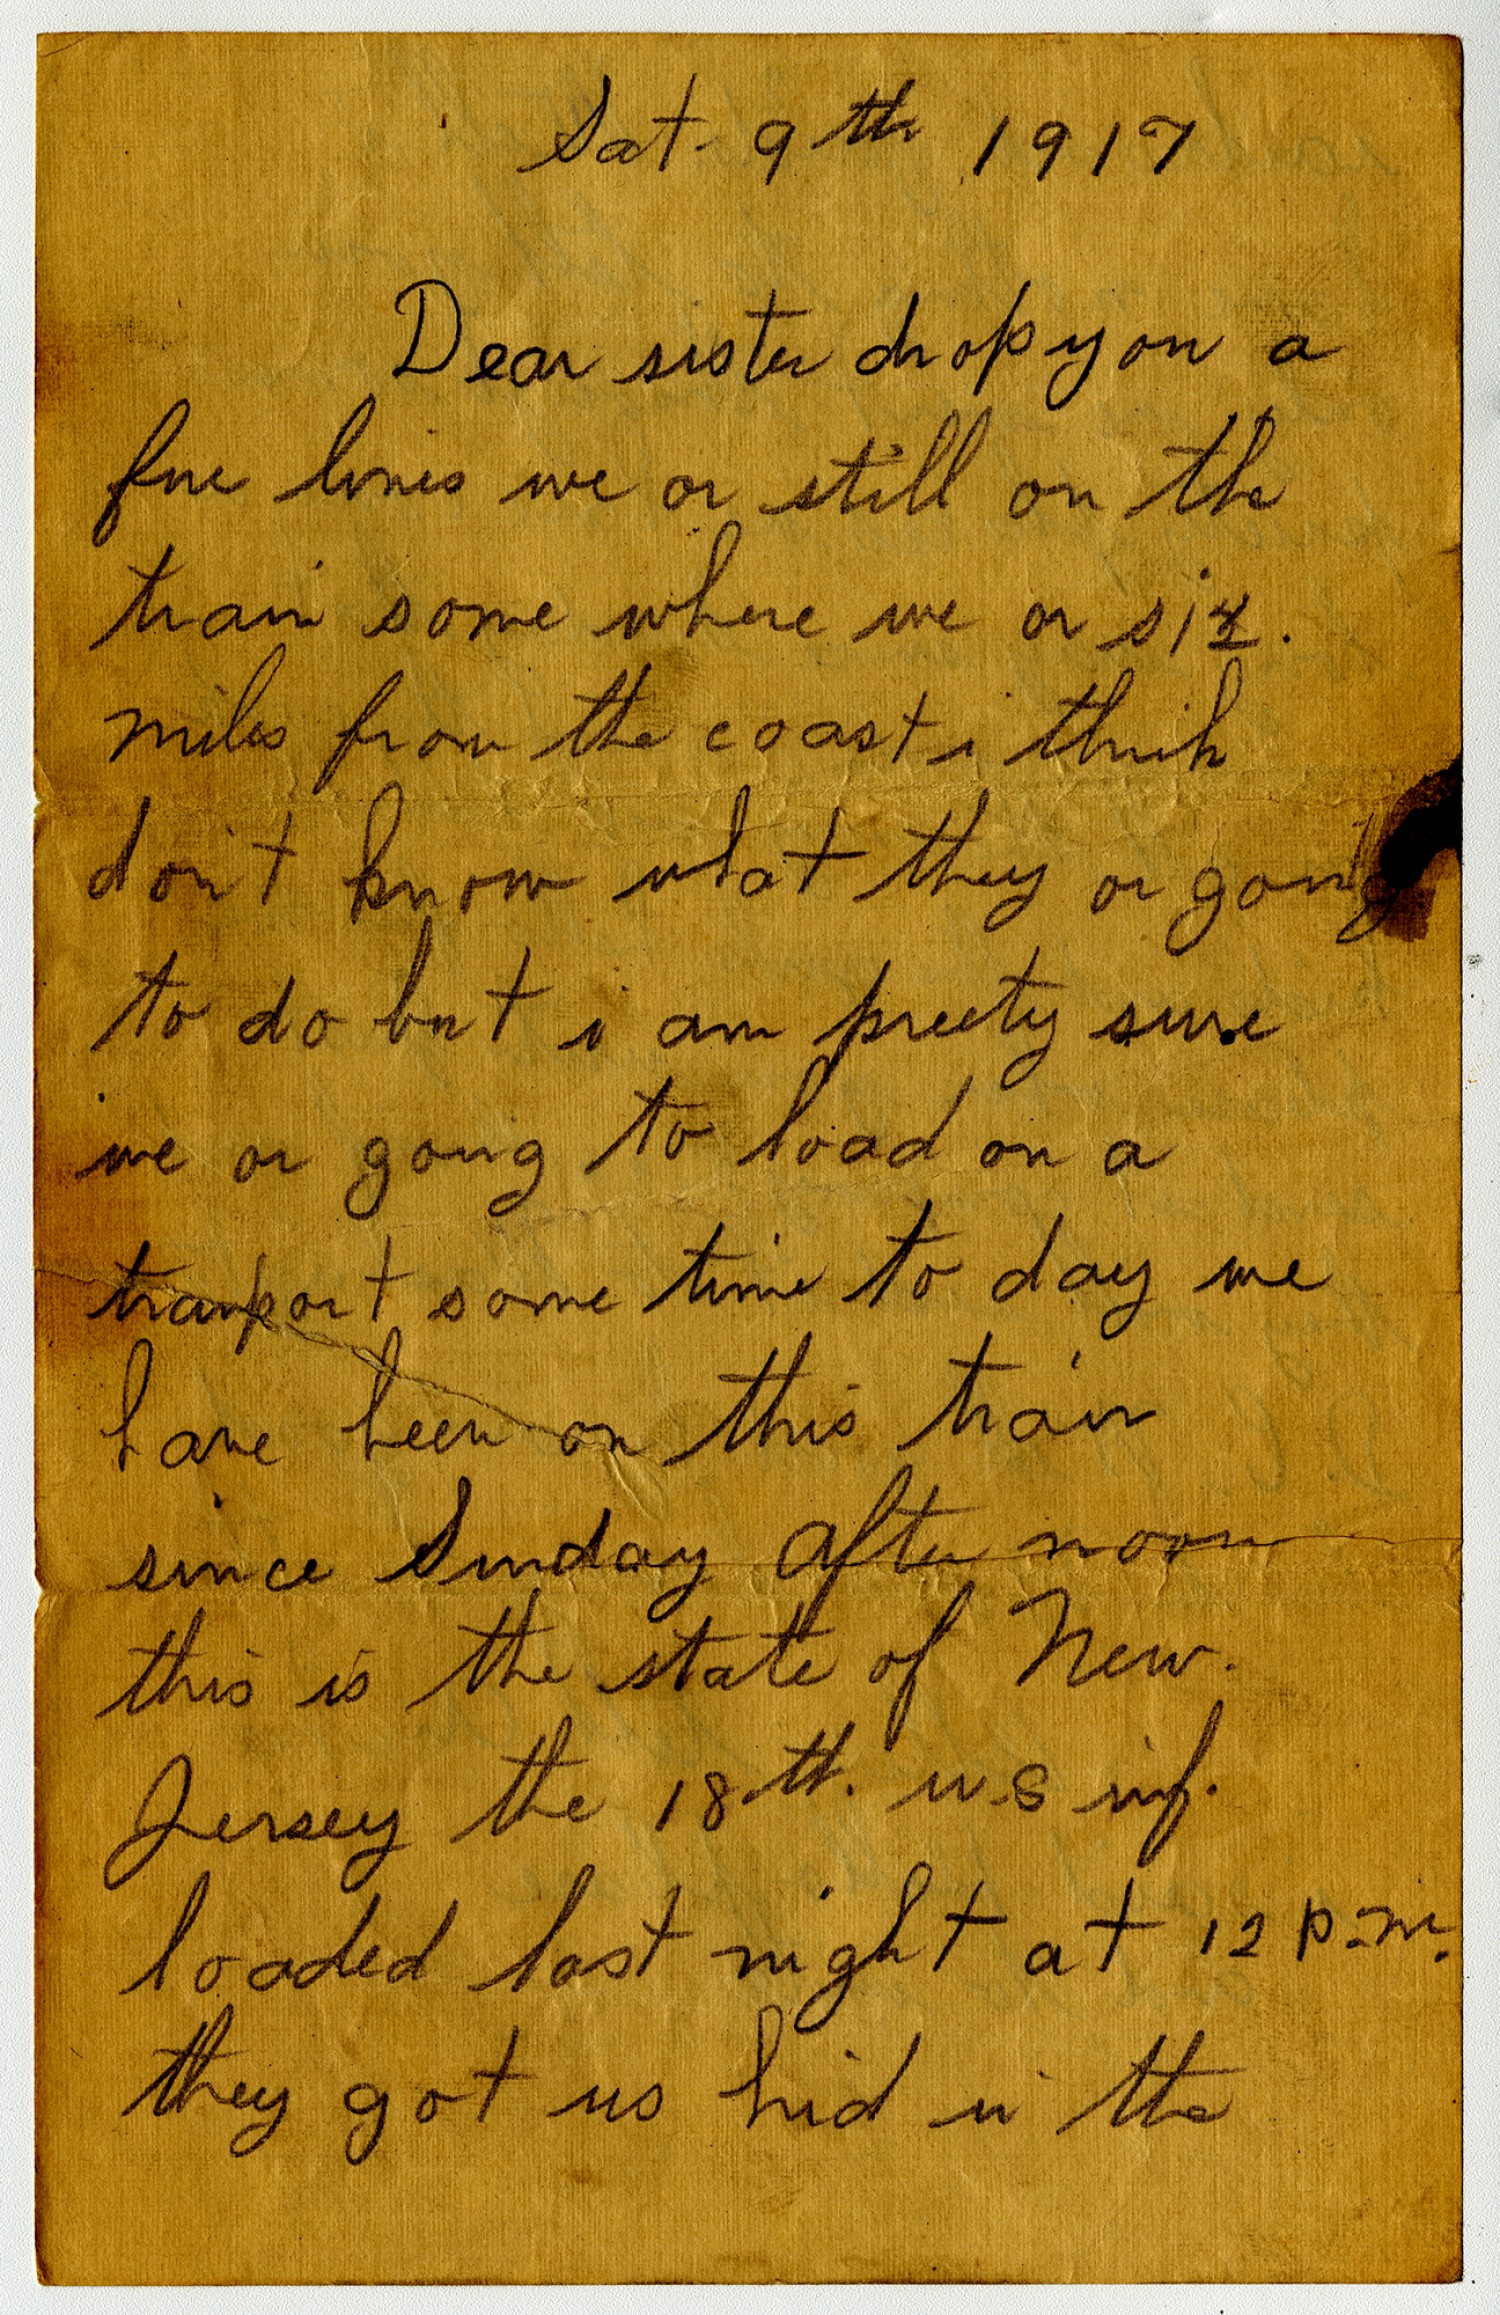 Sat. 9th 1917
Dear sister drop you a
fue lines we or still on the
train some where we or six.
miles from the coast i think
don't know what they or going
to do but i am preety sure
we or going to load on a
tranport some time to day we
have been on this train
since Sunday After noon
this is the state of New.
Jersey the 18th. u.s inf.
loaded last night at 12 p.m.
they got us hid in the